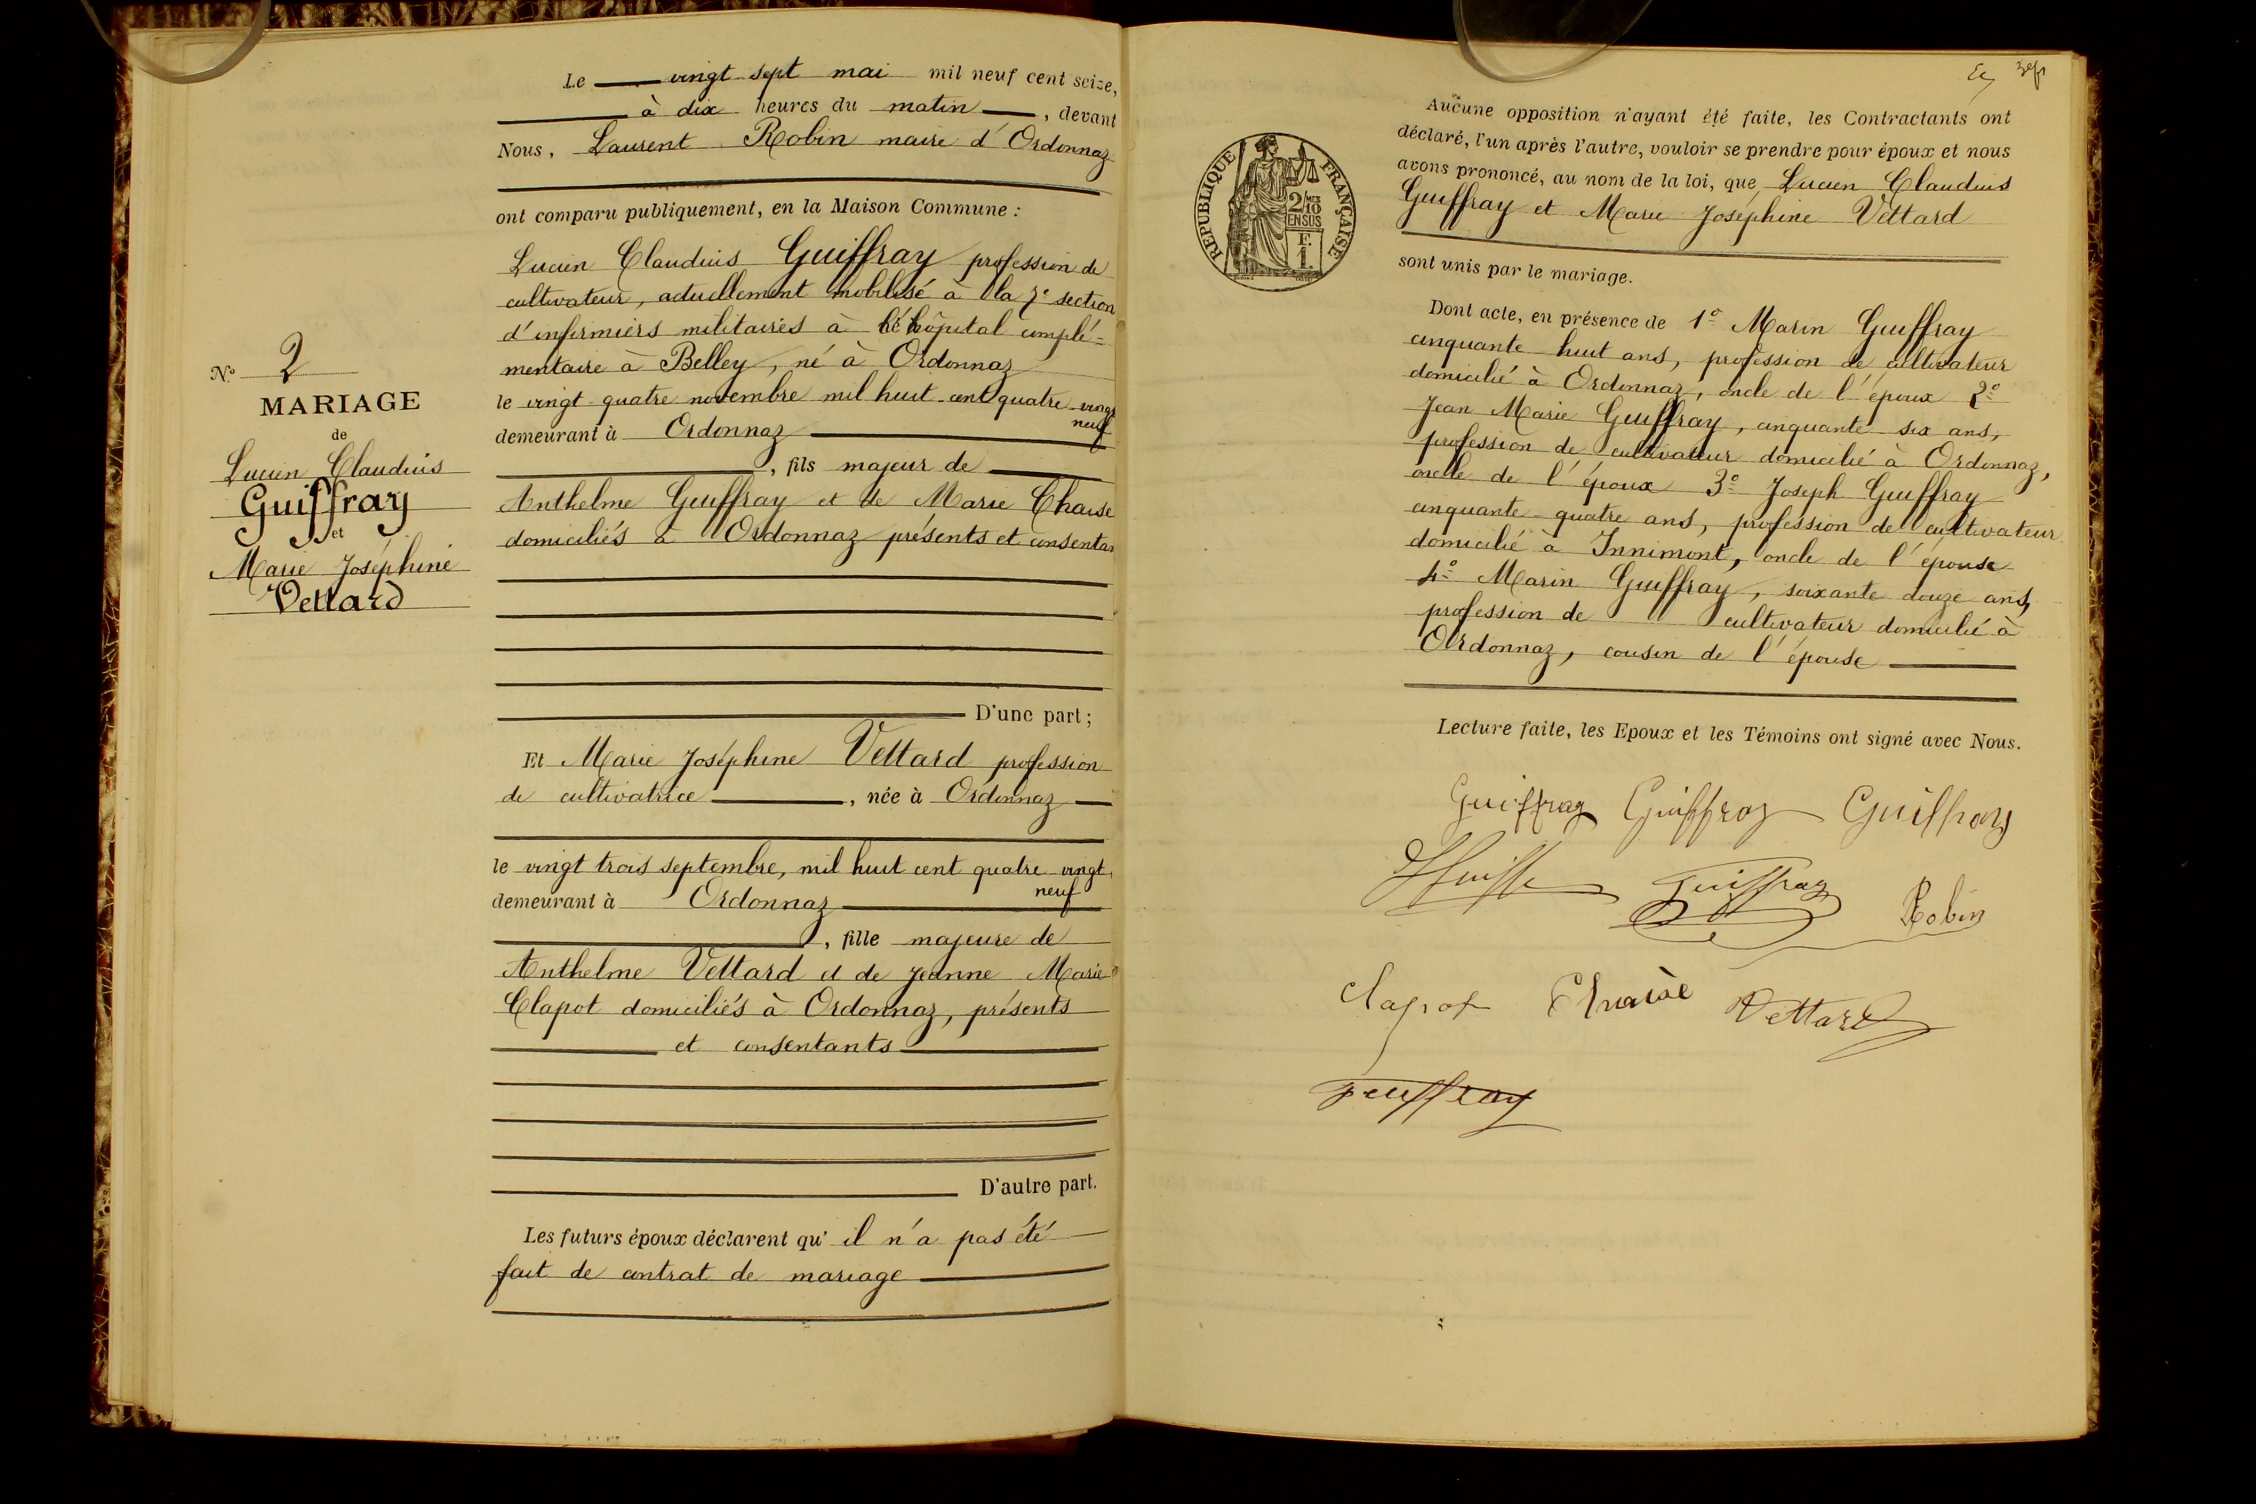 Le vingt sept mai mil neuf cent seize,
à dix heures du matin, devant
Nous, Laurent Robin maire d'Ordonnaz
ont comparu publiquement, en la Maison Commune :
Lucien Claudius Guiffray profession de
cultivateur, actuellement mobilisé à la 7e section
d'infirmiers militaires à l'hôpital complé=
mentaire à Belley, né à Ordonnaz
le vingt quatre novembre mil huit cent quatre vingt
neuf
demeurant à Ordonnaz
, fils majeur de
Anthelme Guiffray et de Marie Chaise
domiciliés à Ordonnaz présents et consentan
D'une part ;
Et Marie Joséphine Vettard profession
de cultivatrice, née à Ordonnaz
le vingt trois septembre, mil huit cent quatre vingt
neuf
demeurant à Ordonnaz
, fille majeure de
Anthelme Vettard et de Jeanne Marie
Clapot domiciliés à Ordonnaz, présents
et consentants
D'autre part.
Les futurs époux déclarent qu'il n'a pas été
fait de contrat de mariage
No 2
MARIAGE
de
Lucien Claudius
Guiffray
et
Marie Joséphine
Vettard
REPUBLIQUE FRANÇAISE
2/10
EN SUS
F.
1.
Aucune opposition n'ayant été faite, les Contractants ont
déclaré, l'un après l'autre, vouloir se prendre pour époux et nous
avons prononcé, au nom de la loi, que Lucien Claudius
Guiffray et Marie Joséphine Vettard
sont unis par le mariage.
Dont acte, en présence de 1º Marin Guiffray
cinquante huit ans, profession de cultivateur
domicilié à Ordonnaz, oncle de l'époux 2º
Jean Marie Guiffray, cinquante six ans,
profession de cultivateur domicilié à Ordonnaz,
oncle de l'époux 3º Joseph Guiffray
cinquante quatre ans, profession de cultivateur
domicilié à Innimont, oncle de l'épouse
4º Marin Guiffray, soixante douze ans,
profession de cultivateur domicilié à
Ordonnaz, cousin de l'épouse
Lecture faite, les Epoux et les Témoins ont signé avec Nous.
Guiffray Guiffray Guiffray
Guiffray Robin
Clapot Chaise Vettard
Guiffray